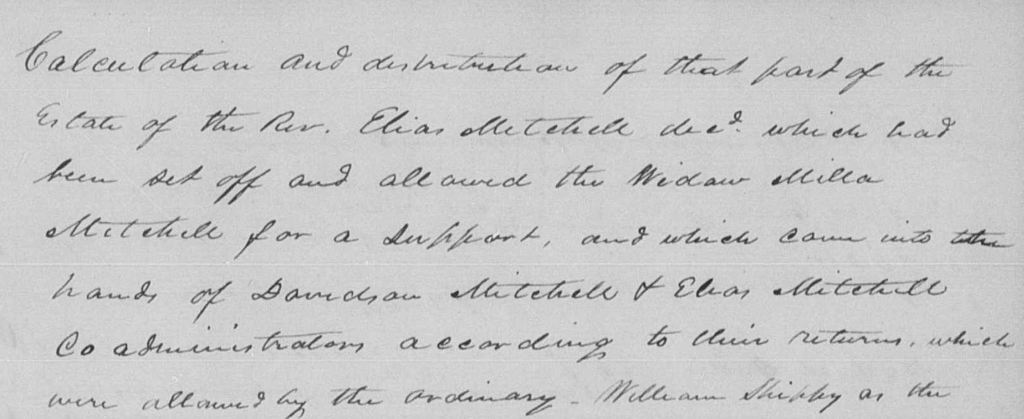 Calculation and distribution of that part of the
Estate of the Rev. Elias Mitchell decd. which had
been set off and allowed the Widow Milla
Mitchell for a support, and which came into the
hands of Davidson Mitchell & Elias Mitchell
Co administrators according to their returns, which
were allowed by the ordinary - William Shippy as the